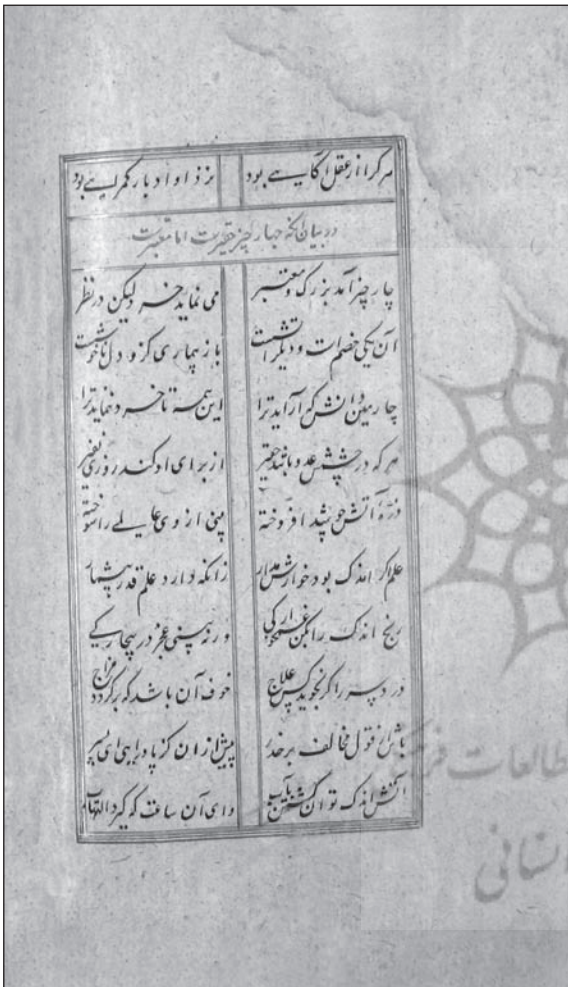 هر کرا از عقل آگاهی بود نزد او ادبار گمراهی بود
در بیان آنکه چهار چیز حقیرست اما معتبرست
چار چیز آمد بزرگ و معتبر می نماید خرد لیکن در نظر
آن یکی خصم است و دیگر آتشست باز بیماری کزو دل ناخوشست
چارمین دانش که آراید ترا این همه تا خرد ننماید ترا
هر که در چشمش عدو باشد حقیر از برای او کند روزی نفیر
ذره آتش چو شد افروخته بینی از وی عالمی را سوخته
علم اگر اندک بود خوارش مدار زانکه دارد علم قدر بیشمار
رنج اندک را بکن غمخوارگی ورنه بینی عجز در بیچارگی
درد سر را گر نجوید کس علاج خوف آن باشد که برگردد مزاج
باش از قول مخالف بر حذر پیش از ان کز پا درایی ای پسر
آتش اندک توان کشتن بآب وای آن ساعت که گیرد التهاب
طالعات فرهنگ
نسانی